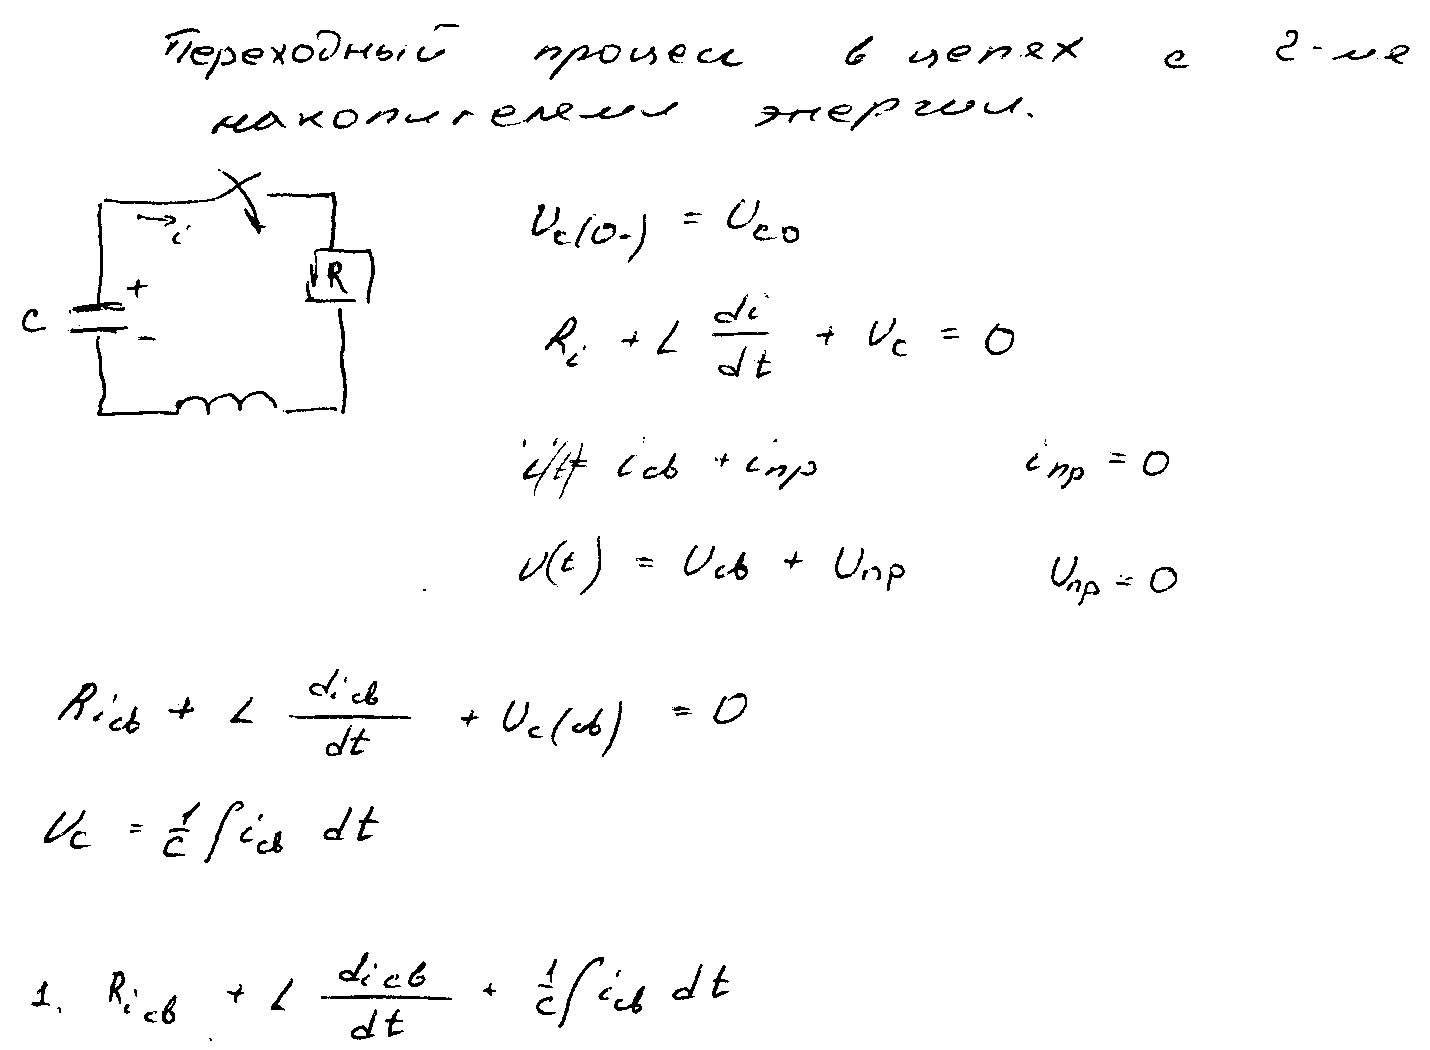 Переходный процесс в цепях с 2-мя
накопителями энергии.
i
+
C
-
R
U_C(0-) = U_C0
Ri + L di/dt + U_C = 0
i(t) = i_св + i_пр    i_пр = 0
U(t) = U_св + U_пр    U_пр = 0
Ri_св + L di_св/dt + U_C(св) = 0
U_C = 1/C ∫ i_св dt
1. Ri_св + L di_св/dt + 1/C ∫ i_св dt